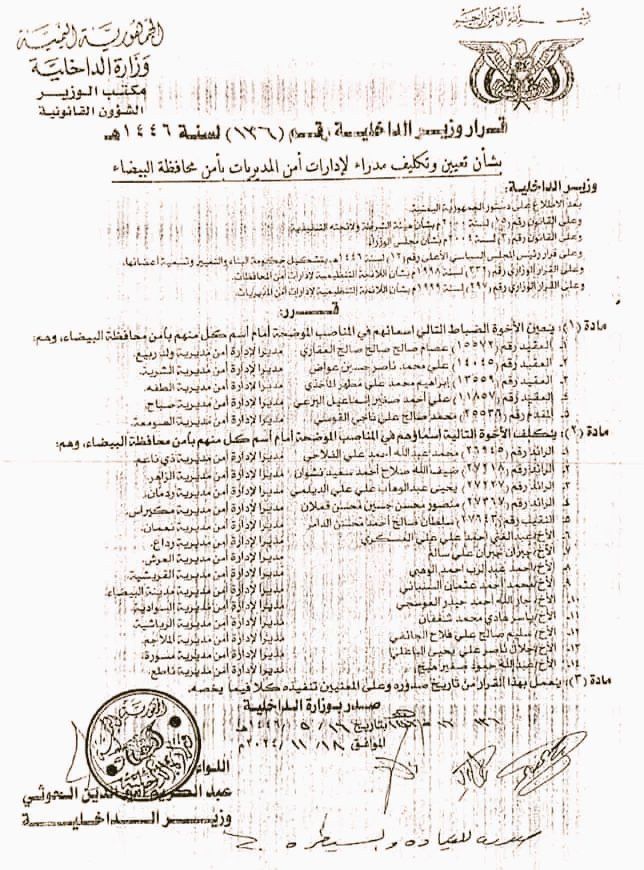 بسم الله الرحمن الرحيم
الجمهورية اليمنية
وزارة الداخلية
مكتب الوزير
الشؤون القانونية
قرار وزير الداخلية رقم (١٣٦) لسنة ١٤٤٦هـ
بشأن تعيين وتكليف مدراء لإدارات أمن المديريات بأمن محافظة البيضاء
وزير الداخلية:
بعد الاطلاع على دستور الجمهورية اليمنية.
وعلى القانون رقم (١٥) لسنة ٢٠٠٠م بشأن هيئة الشرطة ولائحته التنفيذية.
وعلى القانون رقم (٣) لسنة ٢٠٠٤م بشأن مجلس الوزراء.
وعلى قرار رئيس المجلس السياسي الأعلى رقم (١٢) لسنة ١٤٤٦هـ بتشكيل حكومة البناء والتغيير وتسمية أعضائها.
وعلى القرار الوزاري رقم (٣٣٢) لسنة ١٩٩٨م بشأن اللائحة التنظيمية لإدارات أمن المحافظات.
وعلى القرار الوزاري رقم (٢٩٧) لسنة ١٩٩٩م بشأن اللائحة التنظيمية لإدارات أمن المديريات.
قـــرر:
مادة (١): يعين الأخوة الضباط التالي أسمائهم في المناصب الموضحة أمام أسم كل منهم بأمن محافظة البيضاء، وهم:
١- العقيد رقم (١٥٥٧٢) عصام صالح صالح صالح الغفاري مديرا لإدارة أمن مديرية ولد ربيع.
٢- العقيد رقم (١٤٠٤٥) علي محمد ناصر حسين عواض مديرا لإدارة أمن مديرية الشرية.
٣- العقيد رقم (١٣٥٥٩) إبراهيم محمد علي مطهر المأخذي مديرا لإدارة أمن مديرية الطفه.
٤- العقيد رقم (١١٨٥٧) علي أحمد صغير إسماعيل البرعي مديرا لإدارة أمن مديرية صباح.
٥- المقدم رقم (٢٥٥٣٦) محمد صالح علي ناجي القوسي مديرا لإدارة أمن مديرية الصومعة.
مادة (٢): يكلف الأخوة التالية أسماؤهم في المناصب الموضحة أمام أسم كل منهم بأمن محافظة البيضاء، وهم:
١- الرائد رقم (٢٦٩٤٥) محمد عبدالله أحمد علي الفلاحي مديرا لإدارة أمن مديرية ذي ناعم.
٢- الرائد رقم (٢٧٢١٨) ضيف الله صلاح أحمد سعيد نشوان مديرا لإدارة أمن مديرية الزاهر.
٣- الرائد رقم (٢٧٢٢٧) يحيى عبدالوهاب علي علي الديلمي مديرا لإدارة أمن مديرية ردمان.
٤- الرائد رقم (٢٧٣٦٧) منصور محسن حسين محسن فعلان مديرا لإدارة أمن مديرية مكيراس.
٥- النقيب رقم (٢٧٩٤٢) سلطان صالح أحمد محسن الدامر مديرا لإدارة أمن مديرية نعمان.
٦- الأخ/ عبدالغني أحمد علي علي العسكري مديرا لإدارة أمن مديرية رداع.
٧- الأخ/ جبران جبران علي سالم مديرا لإدارة أمن مديرية العرش.
٨- الأخ/ أحمد عبدالرب أحمد الوهبي مديرا لإدارة أمن مديرية القريشية.
٩- الأخ/ محمد أحمد عثمان السلباني مديرا لإدارة أمن مديرية مدينة البيضاء.
١٠- الأخ/ جارالله أحمد حيدر العوضجي مديرا لإدارة أمن مديرية السوادية.
١١- الأخ/ ياسر هادي محمد شنفقان مديرا لإدارة أمن مديرية الرياشية.
١٢- الأخ/ سليم صالح علي فلاح الجالفي مديرا لإدارة أمن مديرية الملاجم.
١٣- الأخ/ جلال ناصر علي يحيى الباعلي مديرا لإدارة أمن مديرية مسورة.
١٤- الأخ/ عبدالله حمود سفير اميج مديرا لإدارة أمن مديرية ناطع.
مادة (٣): يعمل بهذا القرار من تاريخ صدوره وعلى المعنيين تنفيذه كلا فيما يخصه.
صدر بوزارة الداخلية
بتاريخ ١٦ / ٥ / ١٤٤٦هـ
الموافق ١٨ / ١١ / ٢٠٢٤م
اللواء
عبدالكريم أمير الدين الحوثي
وزير الداخلية
صورة للقيادة والسيطرة